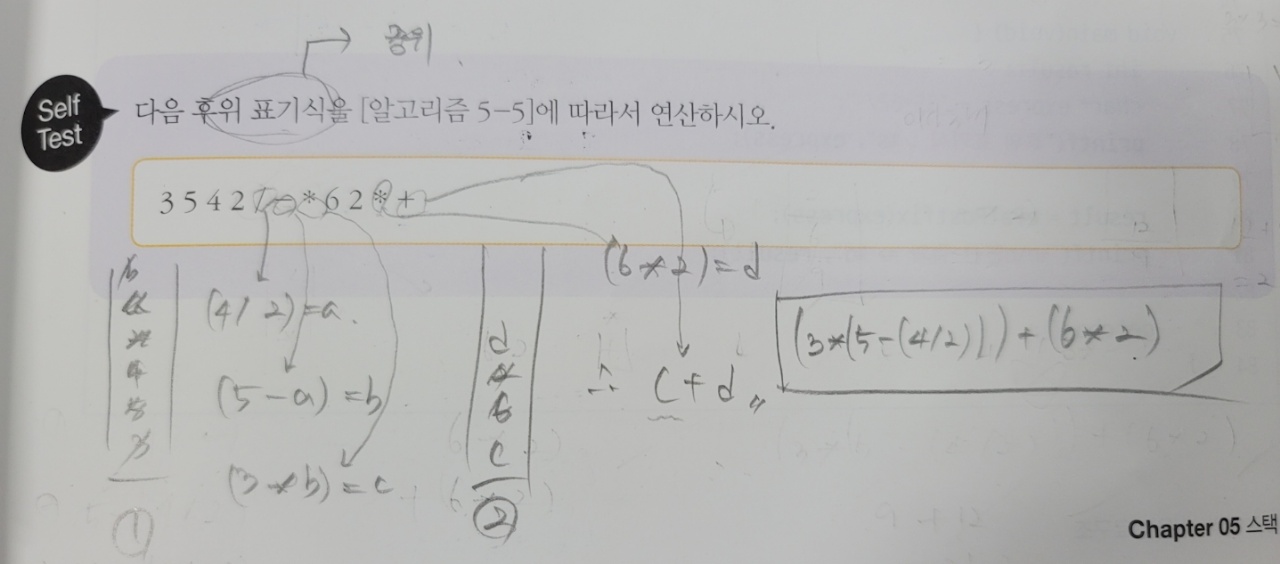 중위
Self
Test
다음 후위 표기식을 [알고리즘 5-5]에 따라서 연산하시오.
3 5 4 2 / - * 6 2 * +
(4/2)=a.
(5-a)=b
(3*b)=c
①
d
c
②
(6*2)=d
∴ c+d
(3*(5-(4/2)))+(6*2)
Chapter 05 스택